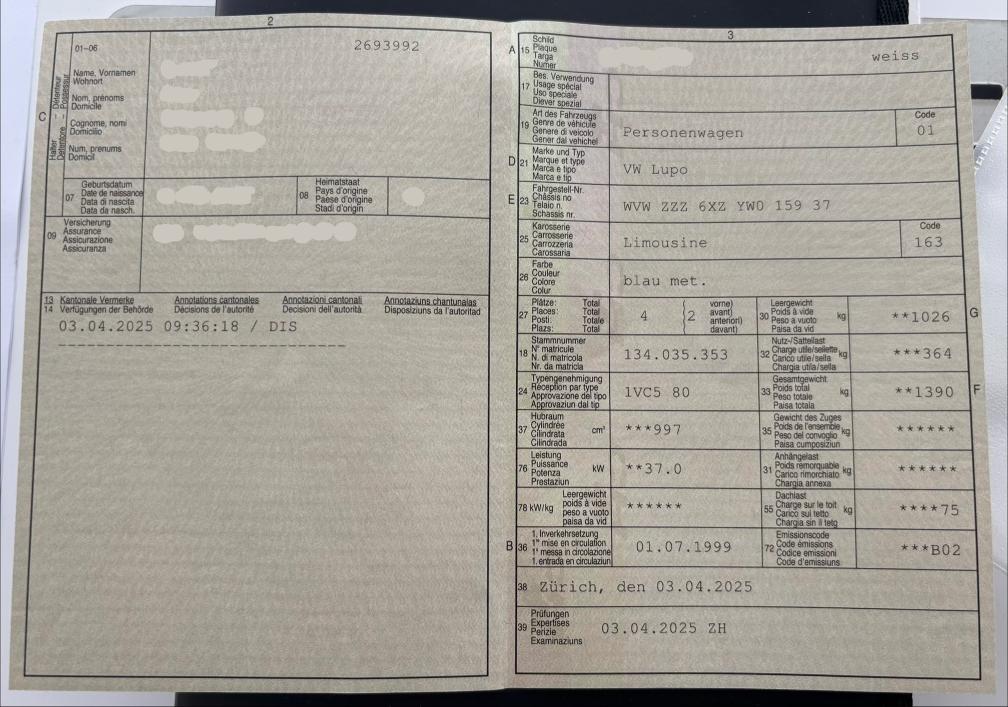 2
01-06
2693992
C
Halter Détenteur
Detentore Possessur
Name, Vornamen
Wohnort
Nom, prénoms
Domicile
Cognome, nomi
Domicilio
Num, prenums
Domicil
07
Geburtsdatum
Date de naissance
Data di nascita
Data da nasch.
08
Heimatstaat
Pays d'origine
Paese d'origine
Stadi d'origin
09
Versicherung
Assurance
Assicurazione
Assicuranza
13
14
Kantonale Vermerke
Verfügungen der Behörde
Annotations cantonales
Décisions de l'autorité
Annotazioni cantonali
Decisioni dell'autorità
Annotaziuns chantunalas
Disposiziuns da l'autoritad
03.04.2025 09:36:18 / DIS
3
A
15
Schild
Plaque
Targa
Numer
weiss
17
Bes. Verwendung
Usage spécial
Uso speciale
Diever spezial
19
Art des Fahrzeugs
Genre de véhicule
Genere di veicolo
Gener dal vehichel
Personenwagen
Code
01
D
21
Marke und Typ
Marque et type
Marca e tipo
Marca e tip
VW Lupo
E
23
Fahrgestell-Nr.
Châssis no
Telaio n.
Schassis nr.
WVW ZZZ 6XZ YW0 159 37
25
Karosserie
Carrosserie
Carrozzeria
Carossaria
Limousine
Code
163
26
Farbe
Couleur
Colore
Colur
blau met.
27
Plätze: Total
Places: Total
Posti: Totale
Plazs: Total
4 (2
vorne)
avant)
anteriori)
davant)
30
Leergewicht
Poids à vide
Peso a vuoto
Paisa da vid
kg
**1026
G
18
Stammnummer
N° matricule
N. di matricola
Nr. da matricla
134.035.353
32
Nutz-/Sattellast
Charge utile/sellette
Carico utile/sella
Chargia utila/sella
kg
***364
24
Typengenehmigung
Réception par type
Approvazione del tipo
Approvaziun dal tip
1VC5 80
33
Gesamtgewicht
Poids total
Peso totale
Paisa totala
kg
**1390
F
37
Hubraum
Cylindrée
Cilindrata
Cilindrada
cm³
***997
35
Gewicht des Zuges
Poids de l'ensemble
Peso del convoglio
Paisa cumposiziun
kg
******
76
Leistung
Puissance
Potenza
Prestaziun
kW
**37.0
31
Anhängelast
Poids remorquable
Carico rimorchiato
Chargia annexa
kg
******
78 kW/kg
Leergewicht
poids à vide
peso a vuoto
paisa da vid
******
55
Dachlast
Charge sur le toit
Carico sul tetto
Chargia sin il tetg
kg
****75
B
36
1. Inverkehrsetzung
1re mise en circulation
1a messa in circolazione
1. entrada en circulaziun
01.07.1999
72
Emissionscode
Code émissions
Codice emissioni
Code d'emissiuns
***B02
38
Zürich, den 03.04.2025
39
Prüfungen
Expertises
Perizie
Examinaziuns
03.04.2025 ZH